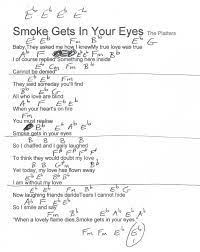 E♭ E♭ E♭ E♭
Smoke Gets In Your Eyes The Platters
E♭ E♭ Fm B♭ E♭ G
Baby,They asked me how I knewMy true love was true
A♭ F E♭ Fm B♭
I of course replied"Something here inside
E♭ Cm Fm B♭
Cannot be denied"
E♭ E♭ Fm
They said someday you'll find
B♭ E♭ G
All who love are blind
A♭ F
When your heart's on fire
Fm
You must realise
B♭ E♭ A♭ E♭
Smoke gets in your eyes
B B B B
So I chaffed and I gaily laughed
F# F# F# F#
To think they would doubt my love
B B G#m
Yet today, my love has flown away
E♭ B♭ B♭
I am without my love
E♭ E♭ Fm B♭ E♭ G
Now laughing friends derideTears I cannot hide
A♭ F E♭
So I smile and say
Fm B♭ E♭ A♭ E♭ A♭
"When a lovely flame dies,Smoke gets in your eyes"
Fm Fm E♭ E♭